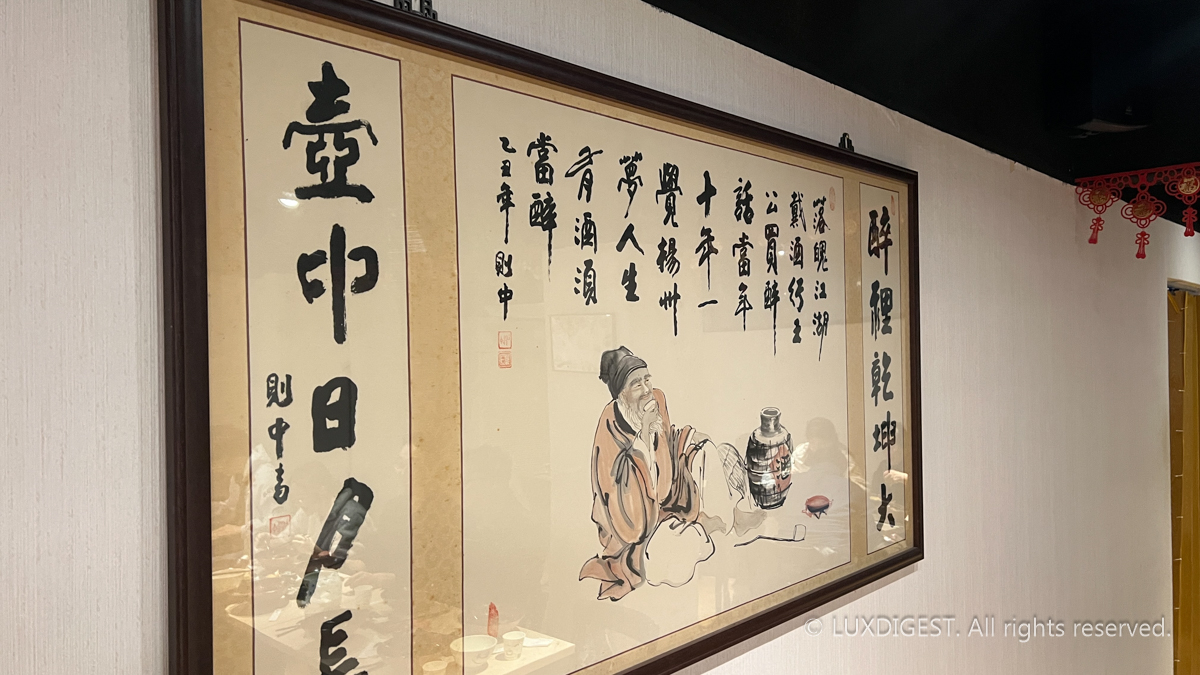 醉裡乾坤大
落魄江湖
戴酒行王
公買醉
話當年
十年一
覺楊州
夢人生
有酒須
當醉
乙丑年 則中
酒
壺中日月長
則中書
© LUXDIGEST. All rights reserved.